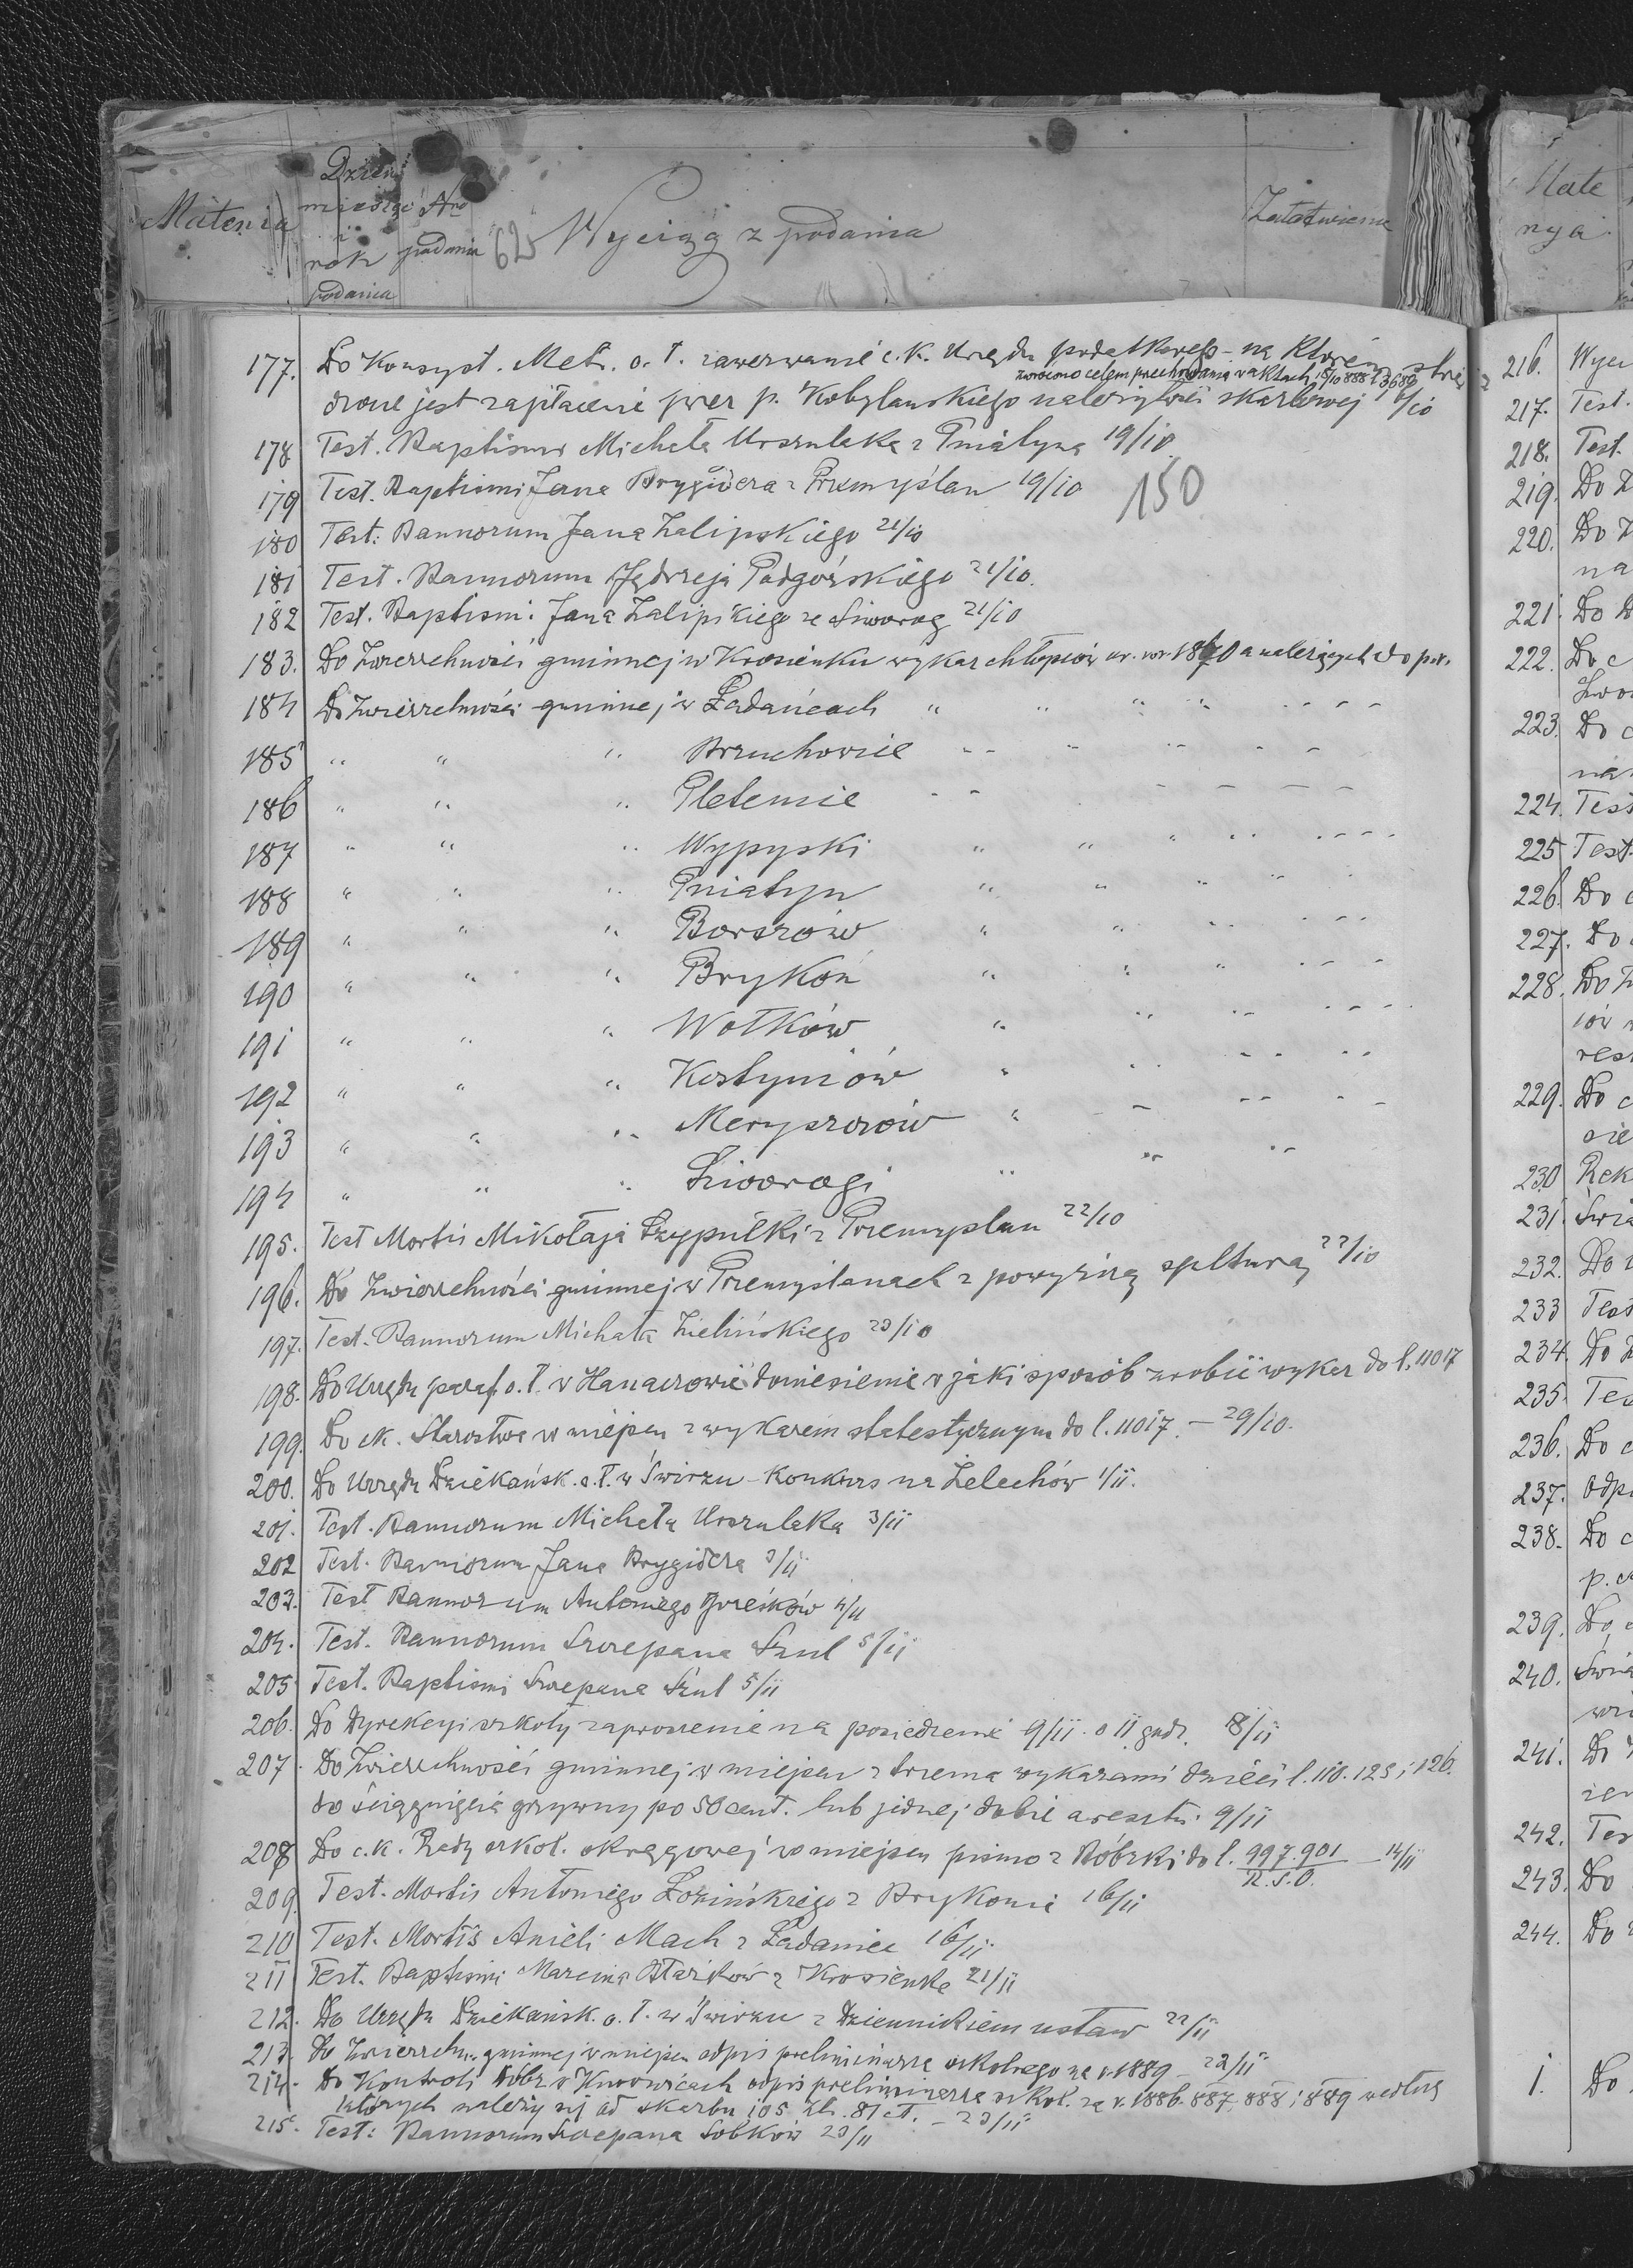 Materia
Dzień
miesiąc
i
rok
podania
Nro
podania
62
Wyciąg z podania
Załatwienie
177. Do Konsyst. Metr. o. ł. zawezwanie c. k. Urzędu podatkoweg - na którem stwier
zwrócono celem przechowania w aktach 15/10 888 l. 3689
dzone jest zapłacenie przez p. Kobylanskiego należytości skarbowej /10
178 Test. Baptismi Michała Urszulaka z Pniatyna 19/10
179 Test. Baptismi Jana Brygidera z Przemyślan 19/10
150
180 Test: Bannorum Jana Zalipskiego 21/10
181 Test. Bannorum Jędrzeja Podgórskiego 21/10.
182 Test. Baptism: Jana Zalipskiego ze Siworog 21/10
183. Do Zwierzchności gminnej w Krosienku wykaz chłopców ur. w r. 1870 a należących do par.
184 Do Zwierzchności gminnej w Ładańcach " " " "
185 " " " Brzuchowice
186 " " " Pletenice
187 " " " Wypyski " " "
188 " " " Pniatyn " " "
189 " " " Borszów " "
190 " " " Brykoń " " "
191 " " " Wołków " "
192 " " " Kostyniów "
193 " " " Meryszczów "
194 " " " Siworogi "
195. Test Mortis Mikołaja Szypułki z Przemyslan 22/10
196. Do Zwierzchności gminnej w Przemyślanach z powyższą 22/10
197. Test. Bannorum Michała Zielińskiego 23/10
198. Do Urzędu paraf. o. ł. w Hanaczowie doniesienie w jaki sposób zrobić wykaz do l. 11017
199. Do ck. Starostwa w miejscu z wykazem statestycznym do l. 11017. - 29/10.
200. Do Urzędu Dziekańsk. o. ł. w Świrzu - Konkurs na Żelechów 1/11.
201. Test. Bannorum Michała Urszulaka 3/11
202 Test. Bannorum Jana Brygidera 3/11
203. Test Bannorum Antoniego 4/11
204. Test. Bannorum Szczepana Szul 5/11
205 Test. Baptismi Szczepana Szul 5/11
206. Do Dyrekcyi szkoły zaproszenie na posiedzenie 9/11 o 11 godz. 8/11
207. Do Zwierzchności gminnej w miejscu z trzema wykazami dzieci l. 110. 125 i 126.
do ściągnięcia grzywny po 50 cent. lub jednej dobie aresztu. 9/11
208 Do c. k. Rady szkol. okręgowej w miejscu pismo z Bóbrki do l. 997.901 - 14/11
R. s. O.
209. Test. Mortis Antoniego Łozińskiego z Brykonia 16/11
210 Test. Mortis Anieli Mach z Ładaniec 16/11
211 Test. Baptismi Marcina z Krosienka 21/11
212. Do Urzędu Dziekańsk. o. ł. w Świrzu z Dziennikiem ustaw 22/11
213. Do Zwierzchn. gminnej w miejscu odpis preliminarza szkolnego na r. 1889 - 22/11
214. Do Kontroli Dóbr w Kurowicach odpis preliminarza szkol. za r. 1886. 887, 888 i 889 według
których należy się od skarbu 105 zł. 81 ct. - 23/11
215. Test: Bannorum Szczepana Sobków 23/11
Mate
nya
216. Wyci
217. Test.
218. Test.
219. Do Z
220. Do Z
na
221. Do D
222. Do c
Lwo
223. Do c
224. Test
225 Test.
226. Do c
227. Do
228. Do
229. Do c
230 Rek
231.
232. Do
233 Test
234. Do
235. Tes
236. Do c
237. odpi
238. Do c
p.
239. Do
240.
241. Do
242. Tes
243. Do
244. Do
1. Do